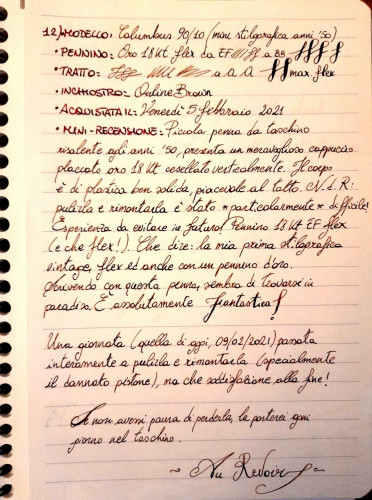 12) MODELLO: Columbus 90/10 (mini stilografica anni '50)
• PENNINO: Oro 18 Kt flex da EF a BB
• TRATTO: a a a max flex
• INCHIOSTRO: Online Brown
• ACQUISTATA IL: Venerdì 5 febbraio 2021
• MINI-RECENSIONE: Piccola penna da taschino
risalente agli anni '50, presenta un meraviglioso cappuccio
placcato oro 18 Kt cesellato verticalmente. Il corpo
è di plastica ben solida, piacevole al tatto. N.I.R:
pulirla e rimontarla è stato *particolarmente* difficile!
Esperienza da evitare in futuro! Pennino 18 Kt EF flex
(e che flex!). Che dire: la mia prima stilografica
vintage, flex ed anche con un pennino d'oro.
Scrivendo con questa penna, sembra di trovarsi in
paradiso. È assolutamente fantastica!
Una giornata (quella di oggi, 09/02/2021) passata
interamente a pulirla e rimontarla (specialmente
il dannato pistone), ma che soddisfazione alla fine!
Se non avessi paura di perderla, la porterei ogni
giorno nel taschino.
~ Au Revoir ~